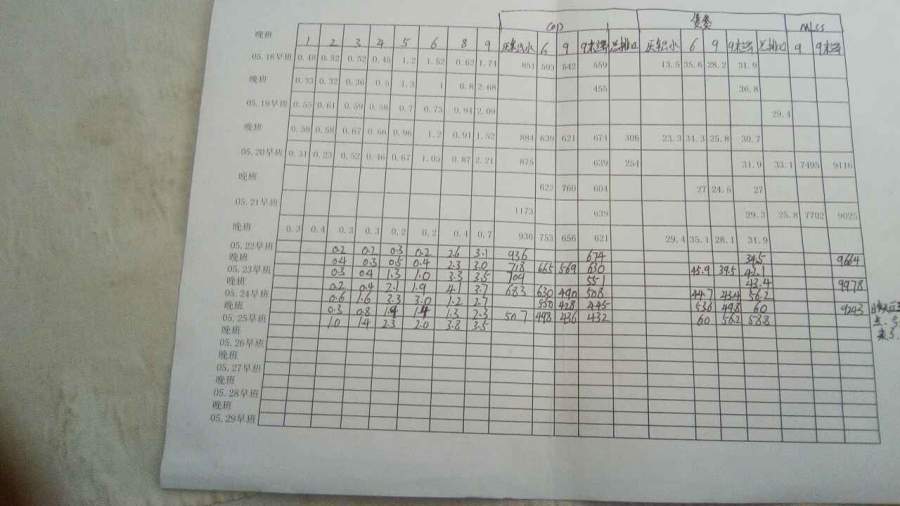 COD 氨氮 MLSS
晚班 1 2 3 4 5 6 8 9 6 9 9末端 总排口 6 9 9末端 总排口 9 9末端
05.18早班 0.48 0.52 0.52 0.45 1.2 1.52 0.62 1.74 851 593 642 559 13.5 35.6 28.2 31.9
晚班 0.33 0.32 0.36 0.6 1.3 1 0.8 2.68 455 36.8
05.19早班 0.55 0.61 0.59 0.58 0.7 0.73 0.91 2.09 29.4
晚班 0.58 0.58 0.67 0.66 0.96 1.2 0.91 1.52 884 639 621 674 306 23.3 34.3 25.8 30.7
05.20早班 0.31 0.23 0.52 0.46 0.67 1.05 0.87 2.21 875 639 254 31.9 33.1 7495 9116
晚班 622 760 604 27 24.6 27
05.21早班 1173 639 29.3 25.8 7702 9025
晚班 0.3 0.4 0.3 0.3 0.2 0.2 0.4 0.7 936 753 656 621 29.4 35.1 28.1 31.9
05.22早班 0.2 0.2 0.3 0.2 2.6 3.1 936 674 34.5 9664
晚班 0.4 0.3 0.5 0.4 2.3 3.0 718 665 569 630 45.9 39.5 42.1
05.23早班 0.3 0.4 1.3 1.0 3.3 3.5 704 551 43.4 9978
晚班 0.2 0.4 2.1 1.9 4.1 3.7 683 630 490 508 44.7 43.4 56.2
05.24早班 0.6 1.6 2.3 3.0 1.2 2.7 550 428 53.6 49.8 60 9243
晚班 0.3 0.8 1.4 1.3 2.3 50.7 498 436 432 60 56.2 58.8
05.25早班 1.0 1.4 2.3 2.0 3.8 3.5
晚班
05.26早班
晚班
05.27早班
晚班
05.28早班
晚班
05.29早班